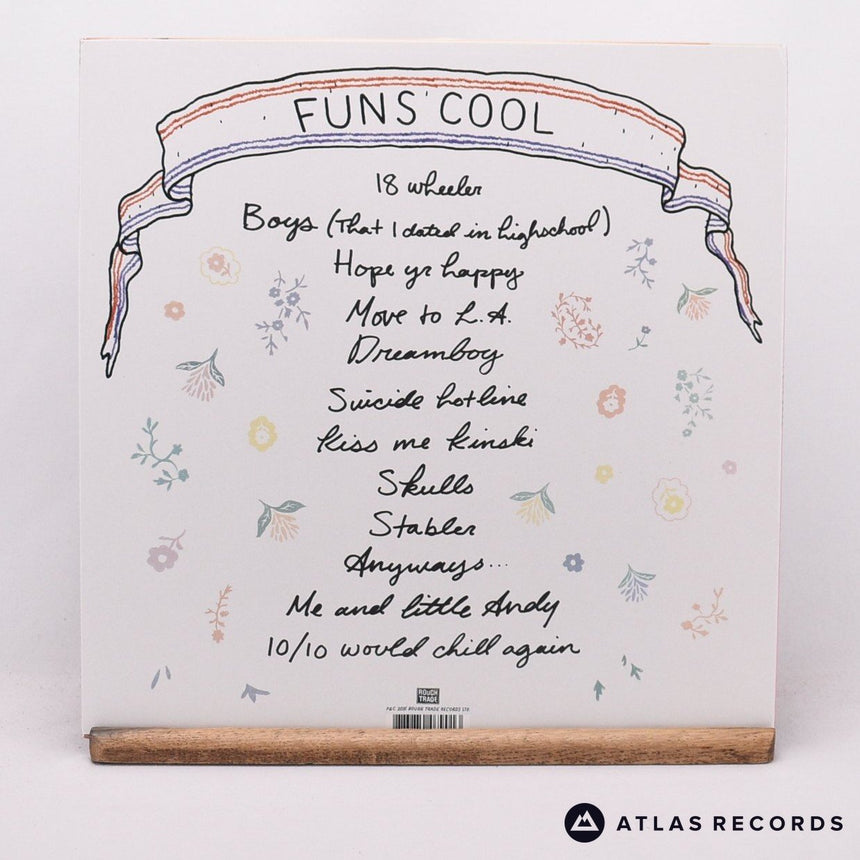 FUNS' COOL
18 wheeler
Boys (That I dated in highschool)
Hope yr happy
Move to L.A.
Dreamboy
Suicide hotline
Kiss me Kinski
Skulls
Stabler
Anyways...
Me and little Andy
10/10 would chill again
ROUGH
TRADE
P&C 2015 ROUGH TRADE RECORDS LTD
ATLAS RECORDS